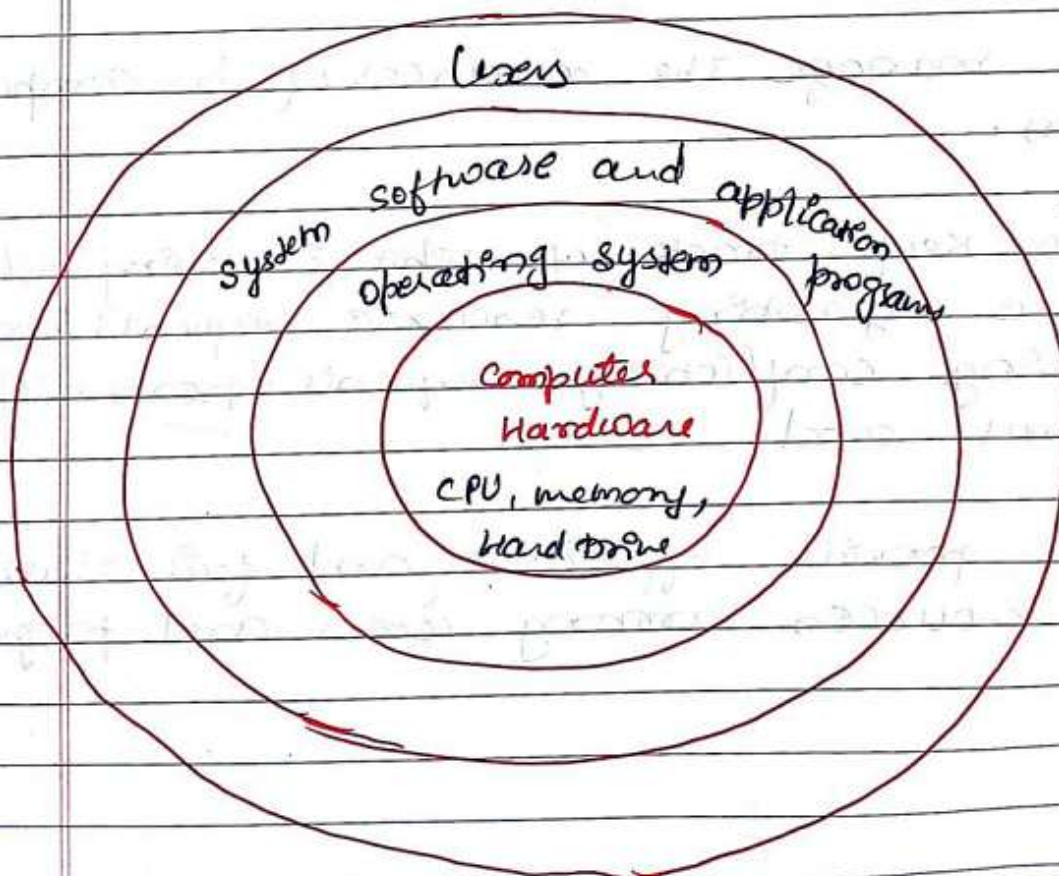 Users
system software and application programs
operating system
Computer
Hardware
CPU, memory,
Hard Drive